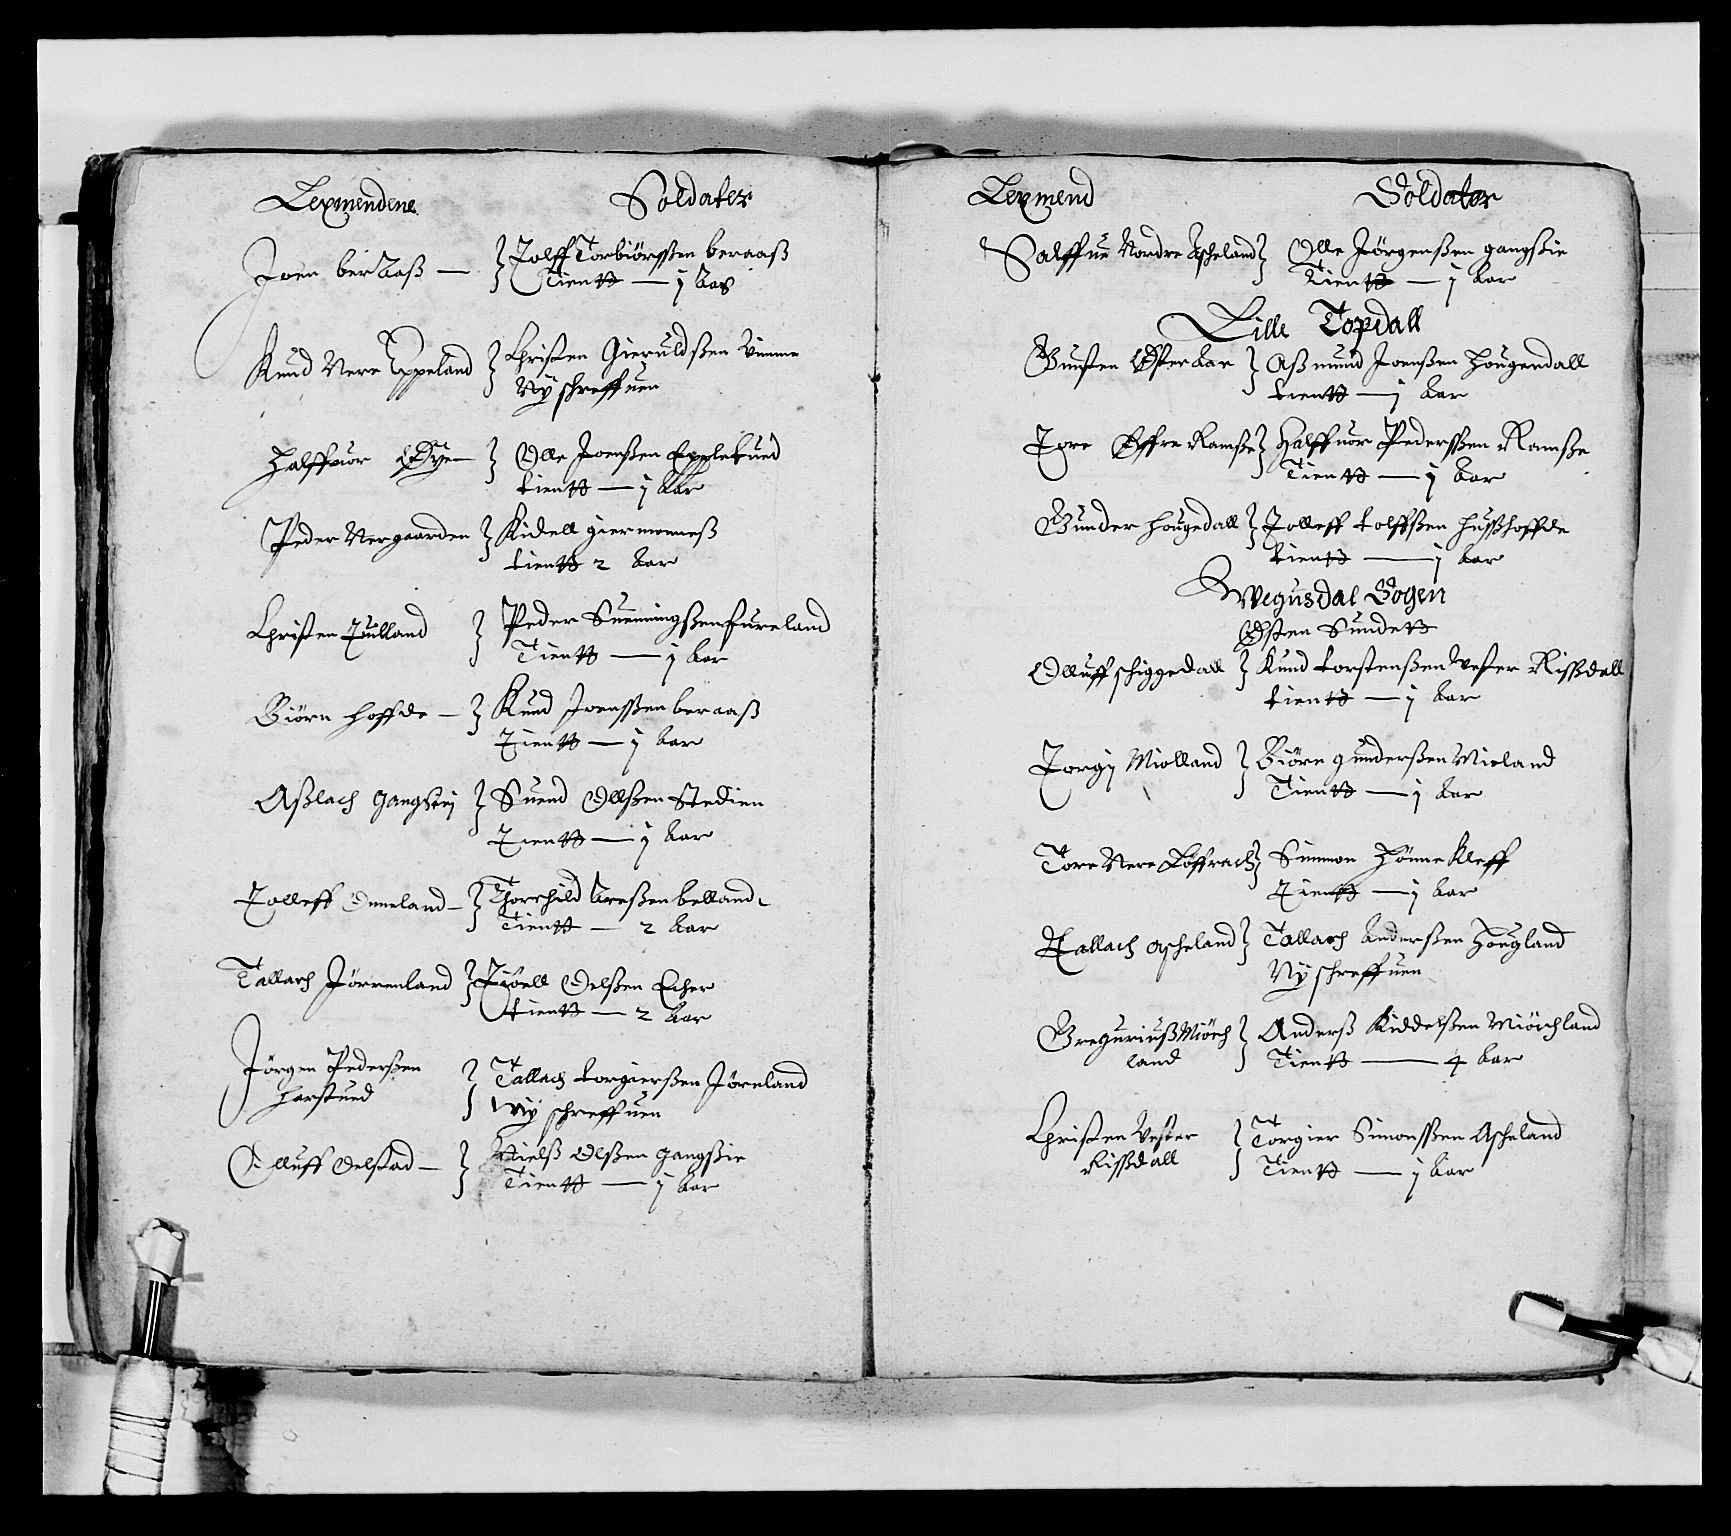 Lexmendene Soldater
Joen beraaß — Tolff Torbiörßen beraaß
Tientt — j aar
Knud Nere Eppeland Christen Gieruldßen Vimme
Nÿ schreffuen
Halffuor Øye — Olle Joenßen Eppletued
tientt — j aar
Peder Nergaarden Kidell giermoneß
tientt 2 aar
Christen Tuelland Peder Suenningßen fureland
Tientt — j aar
Biörn hoffde — Knud Joenßen beraaß
Tientt — j aar
Aßlach gangßej Suend Ollßen Stedien
Tientt — j aar
Tolleff Omeland — Thorchild Areßen belland
Tientt — 2 aar
Tallach Jörrenland Kiöell Oelßen Echer
tientt — 2 aar
Jörgen Pederßen Tallach torgierßen Jörnland
harstued Nÿ schreffuen
Olluff Oelstad — Nielß Olßen gangßie
Tientt — j aar
Lexmend Soldater
Salffue Nordre Ascheland Olle Jörgenßen gangßie
tientt — j aar
Lille Topdall
Gunsten Østerbar Aßmund Joenßen Hougendall
tientt — j aar
Tore Øffre Ramße Halffuor Pederßen Ramße
Tientt — j aar
Gunder hougedall Tolleff tolffßen hußhoffde
tientt — j aar
Wegusdal Sogen
Østen Sundett
Olluff schiggedall Knud torstenßen Vester Rißdall
tientt — j aar
Torgj Miolland Biörn gunderßen Mieland
Tientt — j aar
Tore Nere Löffrach Simmon Hönne Kleff
Tientt — j aar
Tallach Ascheland Tallach Anderßen Hougland
Nÿ schreffuen
Greguriuß Miöch Anderß Kiddelßen Miöchland
land Tientt — 4 aar
Christen Vester Torgier Simonßen Ascheland
Rißdall Tientt — j aar